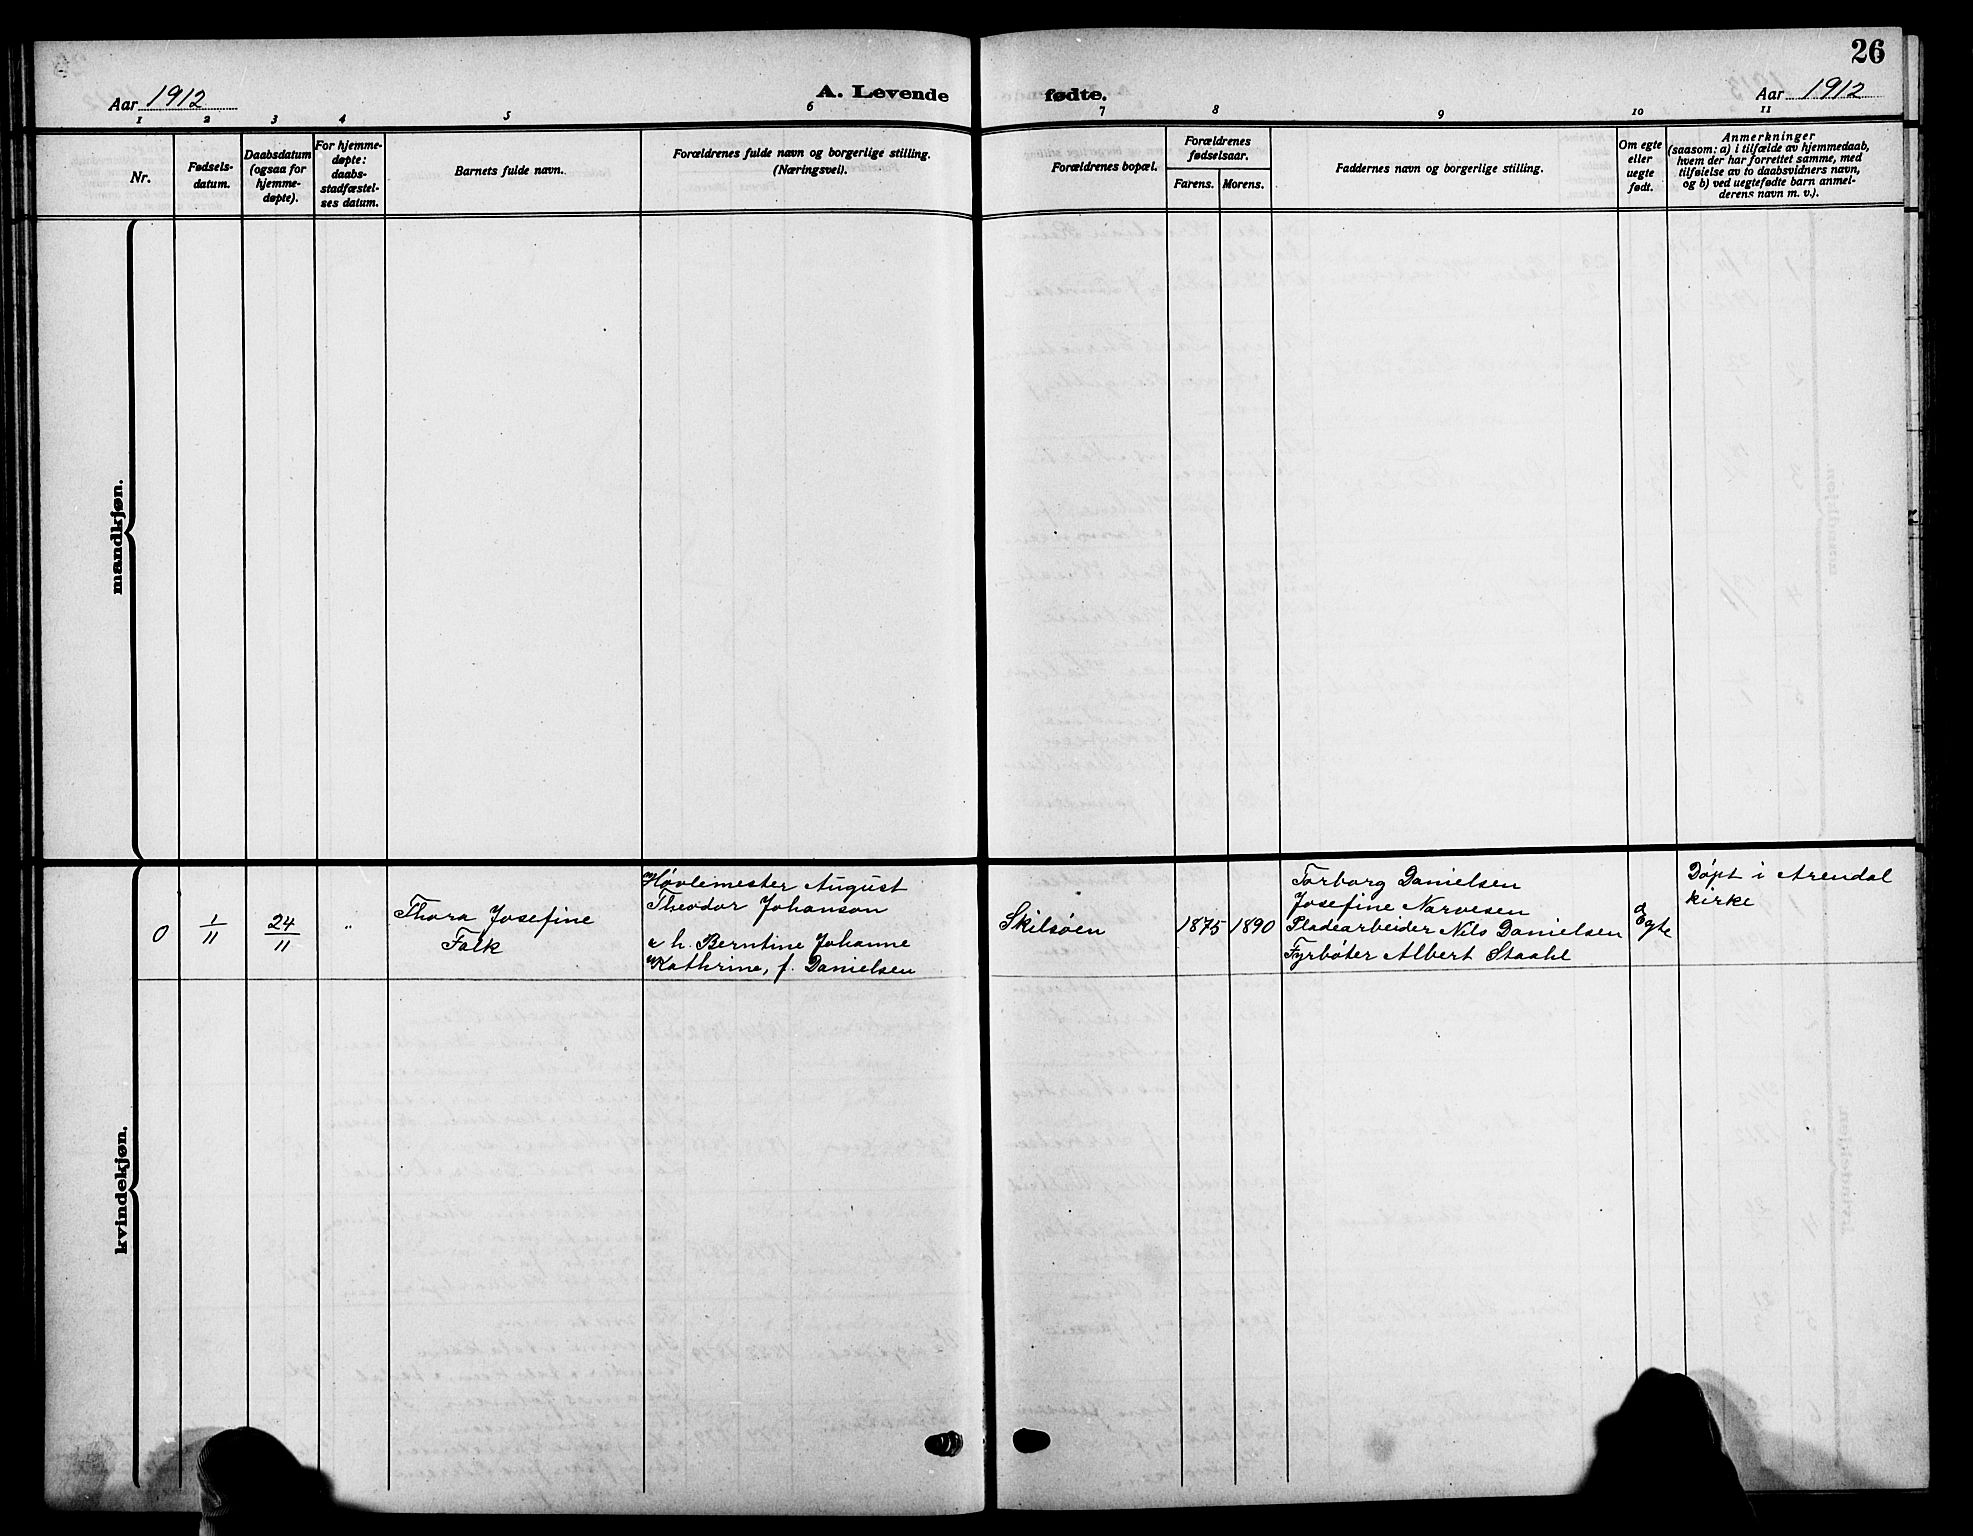 26
Aar 1912
A. Levende
fødte.
Aar 1912
1 2 3 4 5 6 7 8 9 10 11
Nr.
Fødsels-
datum.
Daabsdatum
(ogsaa for
hjemme-
døpte).
For hjemme-
døpte:
daabs-
stadfæstel-
ses datum.
Barnets fulde navn.
Forældrenes fulde navn og borgerlige stilling.
(Næringsvei).
Forældrenes bopæl.
Forældrenes
fødselsaar.
Farens. Morens.
Faddernes navn og borgerlige stilling.
Om egte
eller
uegte
født.
Anmerkninger
(saasom: a) i tilfælde av hjemmedaab,
hvem der har forrettet samme, med
tilføielse av to daabsvidners navn,
og b) ved uegtefødte barn anmel-
derens navn m. v.).
mandkjøn.
kvindekjøn.
0
1/11
24/11
"
Thora Josefine
Falk
Høvlemester August
Theodor Johanson
& h. Berntine Johanne
Kathrine, f. Danielsen
Skilsöen
1875
1890
Torborg Danielsen
Josefine Narvesen
Pladearbeider Nils Danielsen
Fyrböter Albert Staahl
Egte
Döpt i Arendal
kirke